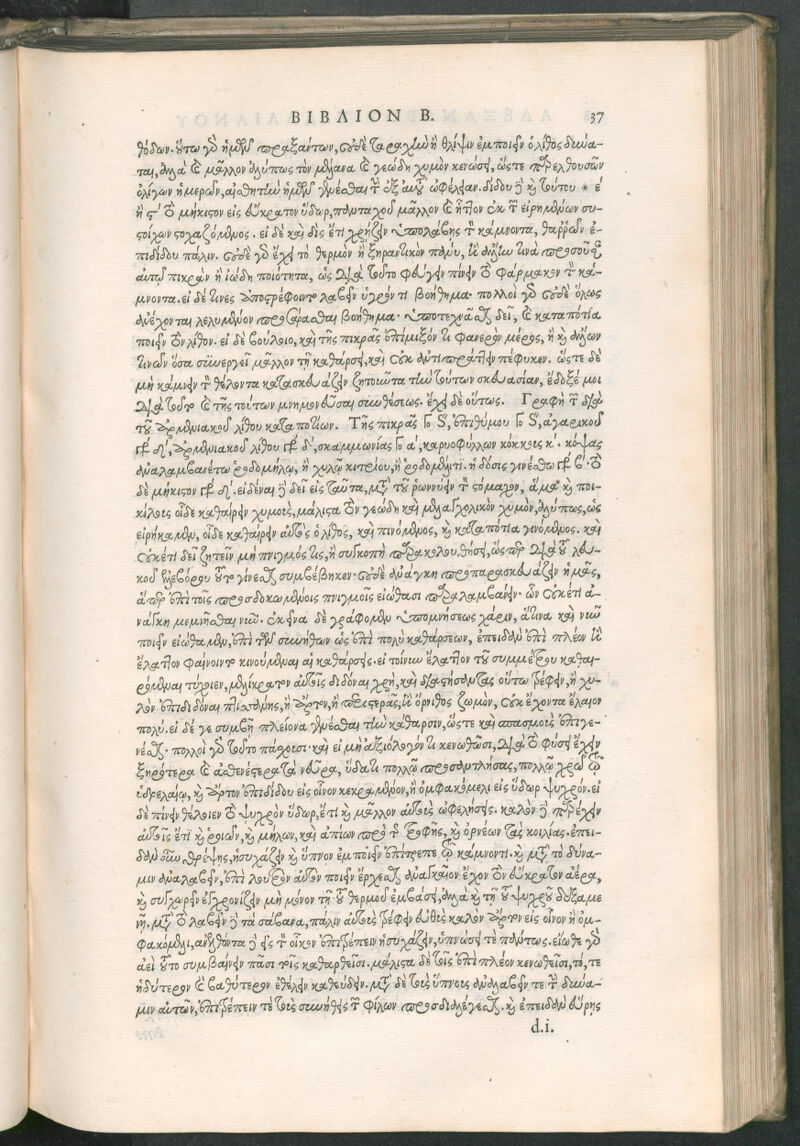 ΒΙΒΛΙΟΝ Β. 37
θόδων. οὕτω γὰρ ἡμῶν πραξάντων, οὐδὲ ταραχὴν ἢ θλίψιν ἐμποιεῖν ὁ λίθος δύνα-
ται, ἀλλὰ καὶ μᾶλλον ἀλύπως τὸν μέλανα καὶ γεώδη χυμὸν κενώσει, ὥστε παρελθουσῶν
ὀλίγων ἡμερῶν, αἰσθητὴν ἡμῖν γενέσθαι τὴν ἐξ αὐτοῦ ὠφέλειαν. δίδου δὲ καὶ τούτου * ε΄
ἢ ϛ΄ τὸ μήκιστον εἰς εὔκρατον ὕδωρ, πανταχοῦ μᾶλλον καὶ ἧττον ἐκ τῶν εἰρημένων συ-
στοίχων στοχαζόμενος. εἰ δὲ καὶ δὶς ἔτι χρῄζειν ὑπολάβῃς τὸν κάμνοντα, θαρρῶν ἐ-
πιδίδου πάλιν. οὐδὲ γὰρ ἔχει τὸ θερμὸν ἢ ξηραντικὸν πάνυ, ἢ ἄλλην τινὰ προσοῦσαν
αὐτῷ πικρὰν ἢ ἰώδη ποιότητα, ὡς διὰ τοῦτο φεύγειν πίνειν τὸ φάρμακον τὸν κά-
μνοντα. εἰ δέ τινες ἀποστρέφοιντο λαβεῖν ὑγρόν τι βοήθημα· πολλοὶ γὰρ οὐδὲ ὅλως
ἀνέχονται λελυμένον προσφέρεσθαι βοήθημα· ὑποτεχνᾶσθαι δεῖ, καὶ καταπότια
ποιεῖν τὸν λίθον. εἰ δὲ βούλοιο, καὶ τῆς πικρᾶς ἐπίμιξόν τι φανερὸν μέρος, ἢ καὶ ἄλλων
τινῶν ὅσα συνεργεῖ μᾶλλον τῇ καθάρσει, καὶ οὐκ ἀντιπράττειν πέφυκεν. ὥστε δὲ
μὴ κάμνειν τὸν θέλοντα κατασκευάζειν ζητοῦντα τὴν τούτων σκευασίαν, ἔδοξέ μοι
διὰ τοῦτο καὶ τῆς τούτων μνημονεῦσαι συνθέσεως. ἔχει δὲ οὕτως. Γραφὴ τῶν διὰ
τοῦ ἀρμενιακοῦ λίθου καταποτίων. Τῆς πικρᾶς γο ς, ἐπιθύμου γο ς, ἀγαρικοῦ
γρ δ΄, ἀρμενιακοῦ λίθου γρ δ΄, σκαμμωνίας γο α΄, καρυοφύλλων κόκκοις κ΄. κόψας
ἀναλαμβανέτω ῥοδομήλῳ, ἢ χυλῷ κιτρίου, ἢ ῥοδομέλιτι. ἡ δόσις γινέσθω γρ β΄. τὸ
δὲ μήκιστον γρ δ΄. εἰδέναι δὲ δεῖ εἰς ταῦτα, μετὰ τοῦ ῥωννύειν τὸν στόμαχον, ἅμα καὶ ποι-
κίλοις οἶδε καθαίρειν χυμοῖς, μάλιστα τὸν γεώδη καὶ μελαγχολικὸν χυμὸν, ἀλύπως, ὡς
εἰρήκαμεν, οἶδε καθαίρειν αὐτὸς ὁ λίθος, καὶ πινόμενος, καὶ καταπότια γινόμενος. καὶ
οὐκέτι δεῖ ζητεῖν μὴ πνιγμός τις, ἢ συγκοπὴ παρακολουθήσῃ, ὥσπερ διὰ τοῦ λευ-
κοῦ ἑλεβόρου τοῦτο γίνεσθαι συμβέβηκεν· οὐδὲ ἀνάγκη προπαρασκευάζειν ἡμᾶς,
ἅπερ ἐπὶ τοῖς προσδοκωμένοις πνιγμοῖς εἰώθασι παραλαμβάνειν· ὧν οὐκέτι ἀ-
νάγκη μεμνῆσθαι νῦν. ἐκεῖνα δὲ γράφομεν ὑπομνήσεως χάριν, ἅτινα καὶ νῦν
ποιεῖν εἰώθαμεν, ἐπὶ τῶν συνήθων ὡς ἐπὶ πολὺ καθάρσεων, ἐπειδὰν ἐπὶ πλέον ἢ
ἔλαττον φαίνοιντο κινούμεναι αἱ καθάρσεις. εἰ τοίνυν ἔλαττον τοῦ συμμέτρου καθαι-
ρόμεναι τύχοιεν, μελίκρατον αὐτοῖς διδόναι χρὴ, καὶ διαστήσαντας οὕτω τρέφειν, ἢ χυ-
λὸν ἐπιδιδόναι πτισάνης, ἢ ἄρτον, ἢ περιστερᾶς, ἢ ὄρνιθος ζωμὸν, οὐκ ἔχοντα ἔλαιον
πολύ. εἰ δέ γε συμβῇ πλείονα γενέσθαι τὴν κάθαρσιν, ὥστε καὶ σπασμοὺς ἐπιγε-
νέσθαι· πολλοὶ γὰρ τοῦτο πάσχουσι· καὶ εἰ μὴ ἀξιόλογόν τι κενωθῶσι, διὰ τὸ φύσει ἔχειν
ξηρότερα καὶ ἀσθενέστερα τὰ νεῦρα, ὕδατι πολλῷ προσαντλήσας, πολλῷ χρῶ τῷ
ὑδρελαίῳ, καὶ ἄρτον ἐπιδίδου εἰς οἶνον κεκραμένον, ἢ ὀμφακόμελι εἰς ὕδωρ ψυχρόν. εἰ
δὲ πίνειν θέλοιεν τὸ ψυχρὸν ὕδωρ, ἔτι καὶ μᾶλλον αὐτοὺς ὠφελήσεις. καλὸν δὲ παρέχειν
αὐτοῖς ἔτι καὶ ῥοιῶν, καὶ μήλων, καὶ ἀπίων πρὸ τῆς τροφῆς, καὶ ὀρνέων τὰς κοιλίας. ἐπει-
δὰν οὖν θρέψῃς, ἡσυχάζειν καὶ ὕπνον ἐμποιεῖν ἐπίτρεπε τῷ κάμνοντι. καὶ μετὰ τὸ δύνα-
μιν ἀναλαβεῖν, ἐπὶ λουτρὸν αὐτὸν ποιεῖν ἔρχεσθαι ἀναγκαῖον ἔχον τὸν εὔκρατον ἀέρα,
καὶ συγχωρεῖν ἐγχρονίζειν μὴ μόνον τῇ τοῦ θερμοῦ ἐμβάσει, ἀλλὰ καὶ τῇ τοῦ ψυχροῦ δεξαμε
νῇ. μετὰ τὸ λαβεῖν δὲ τὰ σάβανα, πάλιν αὐτοὺς τρέφειν εὐθὺς καλὸν ἄρτον εἰς οἶνον ἢ ὀμ-
φακόμελι, ἀνελθόντα δὲ εἰς τὸν οἶκον ἐπιτρέπειν ἡσυχάζειν, ὑπνῶσαί τε πάντως. εἴωθε γὰρ
ἀεὶ τοῦτο συμβαίνειν πᾶσι τοῖς καθαρθεῖσι. μάλιστα δὲ τοῖς ἐπὶ πλέον κενωθεῖσι, τό, τε
ἡδύτερον καὶ βαθύτερον ἐθέλειν καθεύδειν. μετὰ δὲ τοὺς ὕπνους ἀναλαβεῖν τε τὴν δύνα-
μιν αὐτῶν, ἐπιτρέπειν τε τοῖς συνήθεσι τῶν φίλων προσδιαλέγεσθαι. καὶ ἐπειδὰν εὕρῃς
d.i.